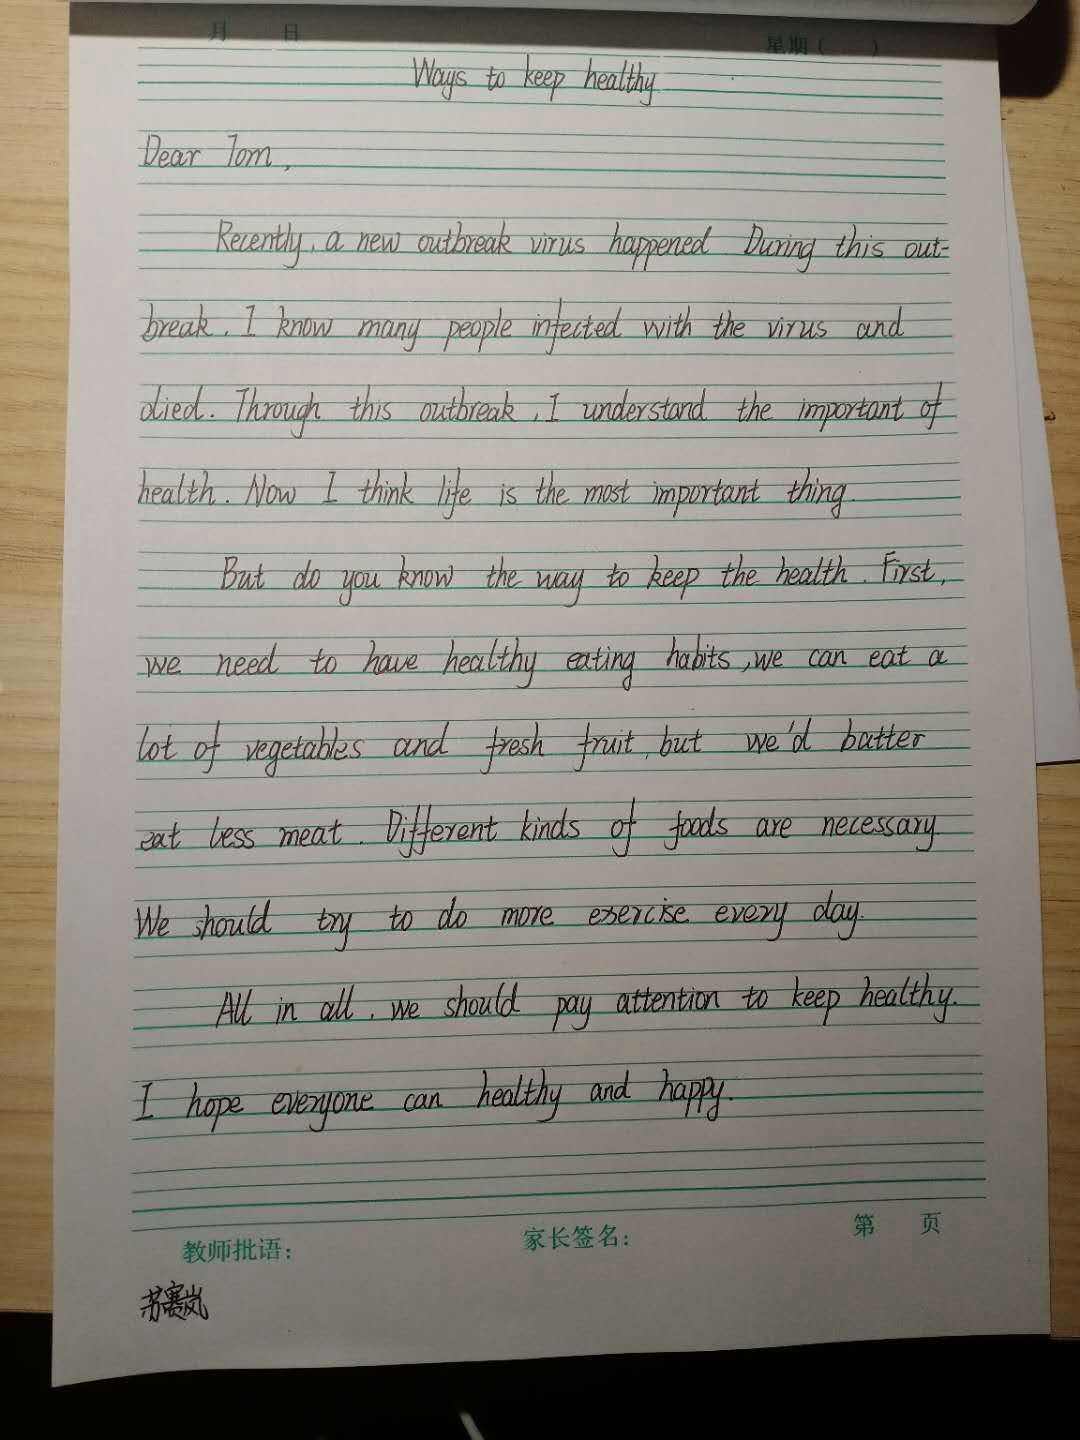 月 日 星期( )
Ways to keep healthy
Dear Tom,
Recently, a new outbreak virus happened During this out-
break, I know many people infected with the virus and
died. Through this outbreak, I understand the important of
health. Now I think life is the most important thing.
But do you know the way to keep the health. First,
we need to have healthy eating habits, we can eat a
lot of vegetables and fresh fruit, but we'd batter
eat less meat. Different kinds of foods are necessary.
We should try to do more exercise every day.
All in all, we should pay attention to keep healthy.
I hope everyone can healthy and happy.
教师批语: 家长签名: 第 页
苏赛岚